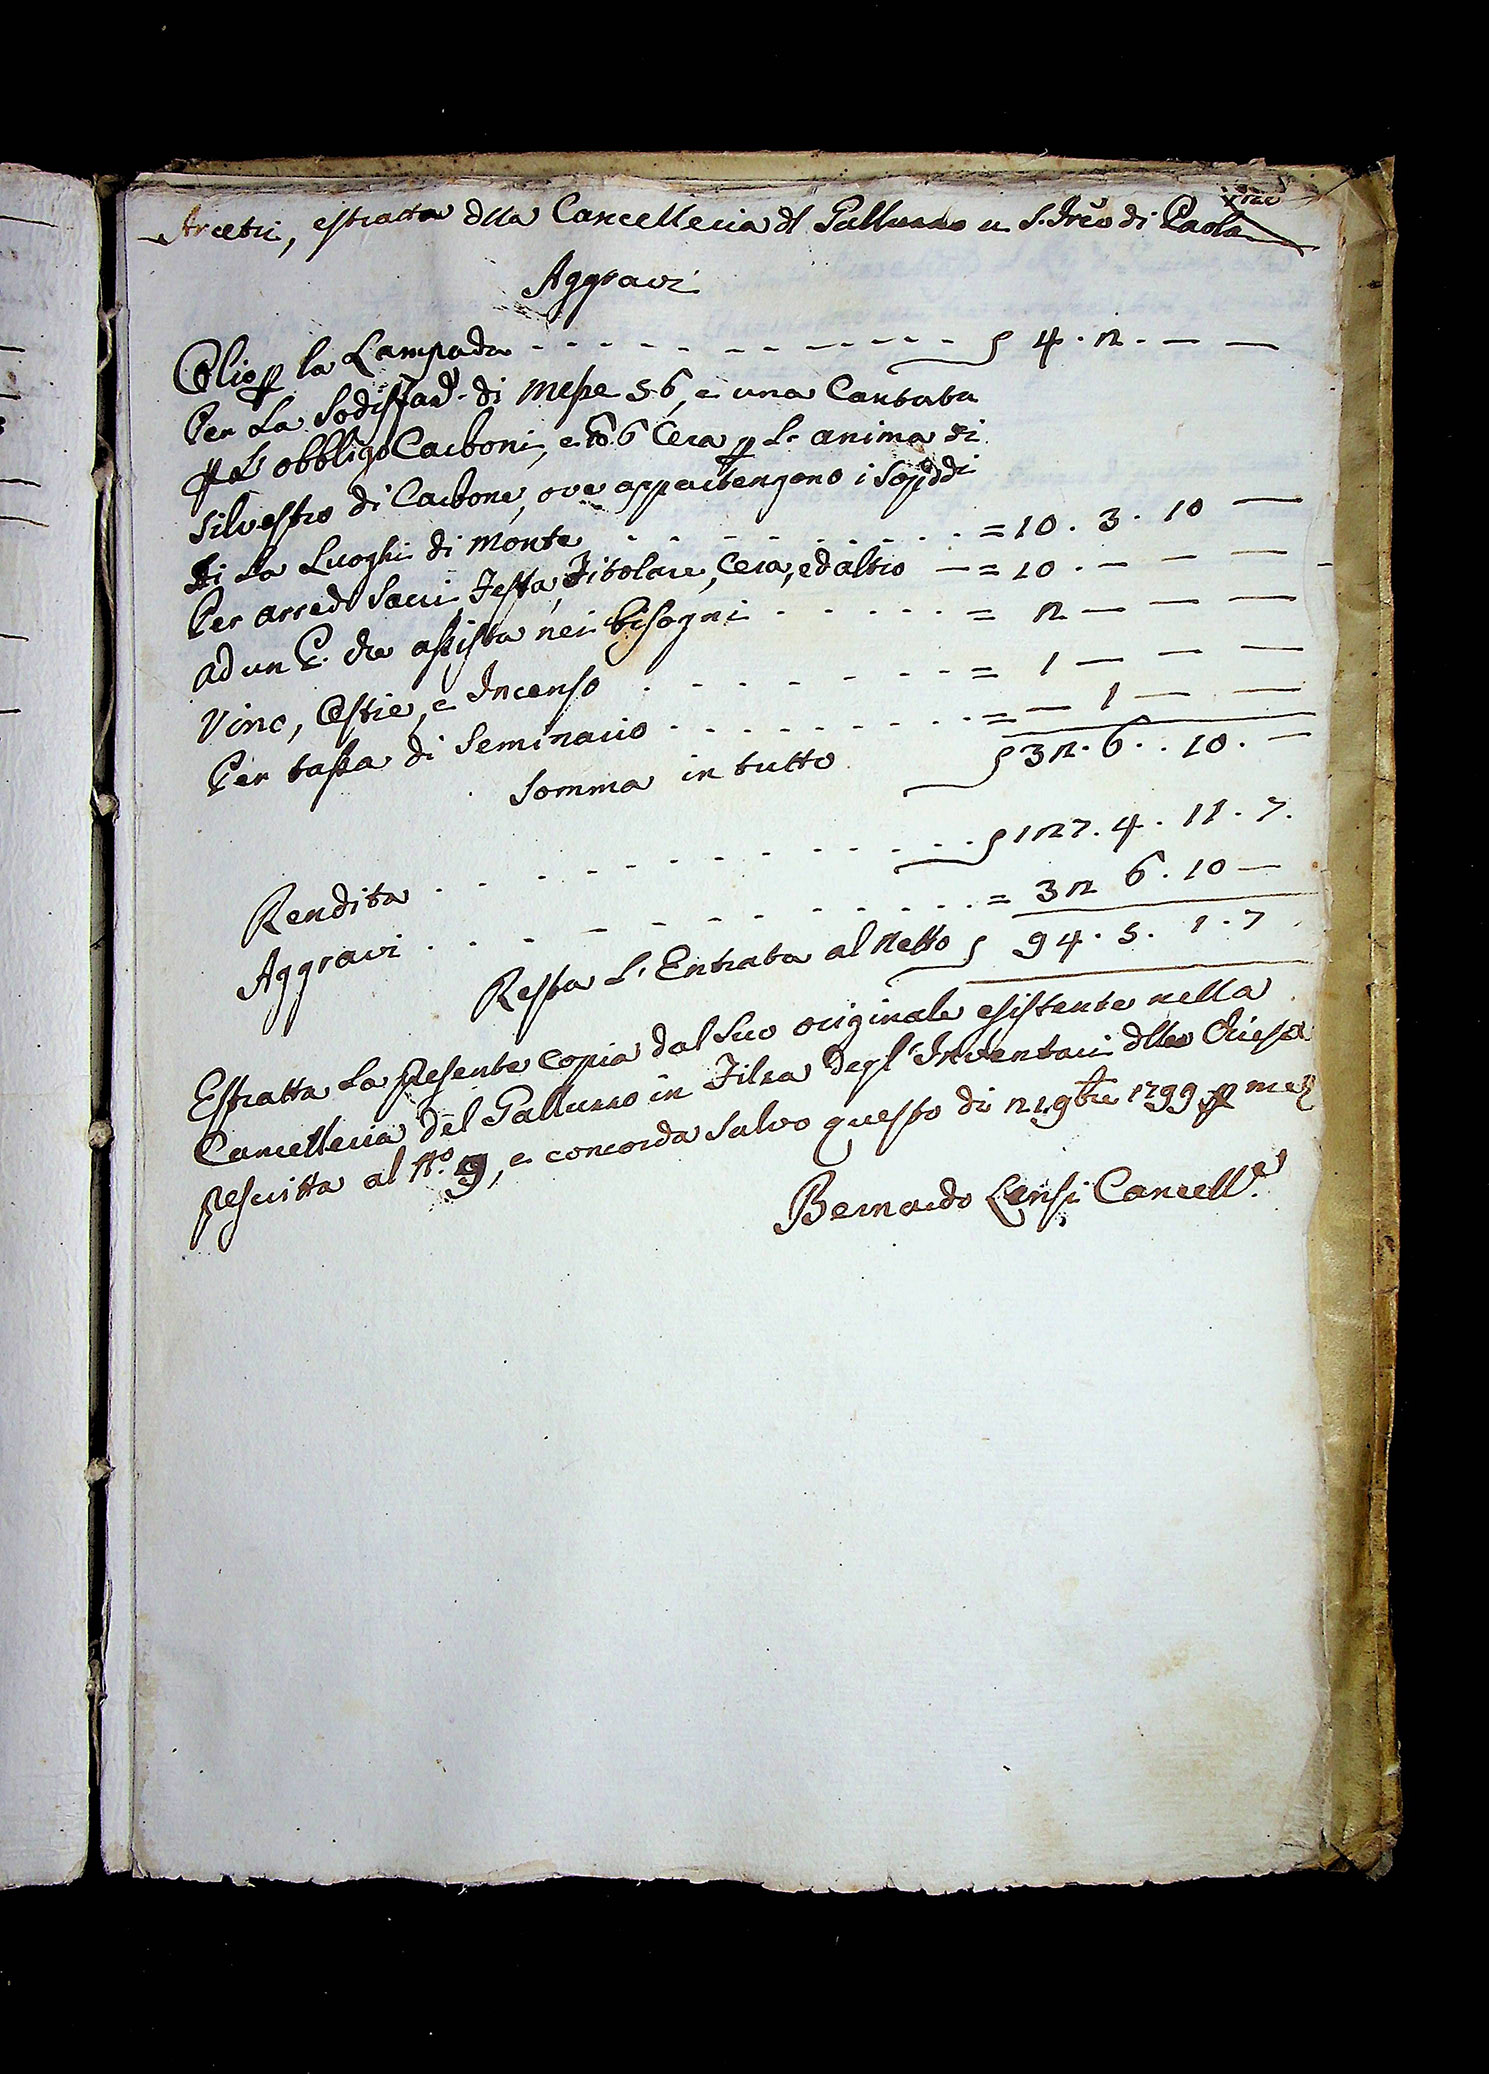 Arcetri, estratta dlla Cancelleria dl Galluzzo in S. Frco di Paola
Aggravi
Olio p la Lampada - - - - - - - - - - 4. 2. — —
Per La Sodisfaz.e di Messe 56, e una Cantata
p L' obbligo Carboni, e lb. 6 Cera p L' anima di
Silvestro di Carbone, ove appartengono i Sopddi
di La Luoghi di Monte . . . . . . . . = 10. 3. 10 —
Per arredi Sacri Festa, Titolare, Cera, ed altro — = 10. — — —
ad un C. che assista nei bisogni . . . . . = 2 — — —
Vino, Ostie, e Incenso . . . . . . . = 1 — — —
Per tassa di Seminario . . . . . . . = — 1 — —
Somma in tutto 32. 6. . 10. —
Rendita . . . . . . . . . . . 127. 4. 11. 7.
Aggravi . . . . . . . . . . . = 32 6. 10 —
Resta L' Entrata al Netto 94. 5. 1. 7
Estratta La presente Copia dal Suo originale esistente nella
Cancelleria del Galluzzo in Filza degl' Inventari dlle Chiese
pescritta al N.o 9, e concorda Salvo questo dì 21. 9bre 1799 p me
Bernardo Lensi Cancell.e